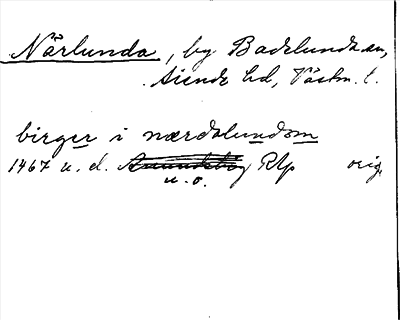 Närlunda, by Badelunda sn,
Siende hd, Västm. l.
birger i nærdalundom
1467 u. d. RAp orig.
u. o.